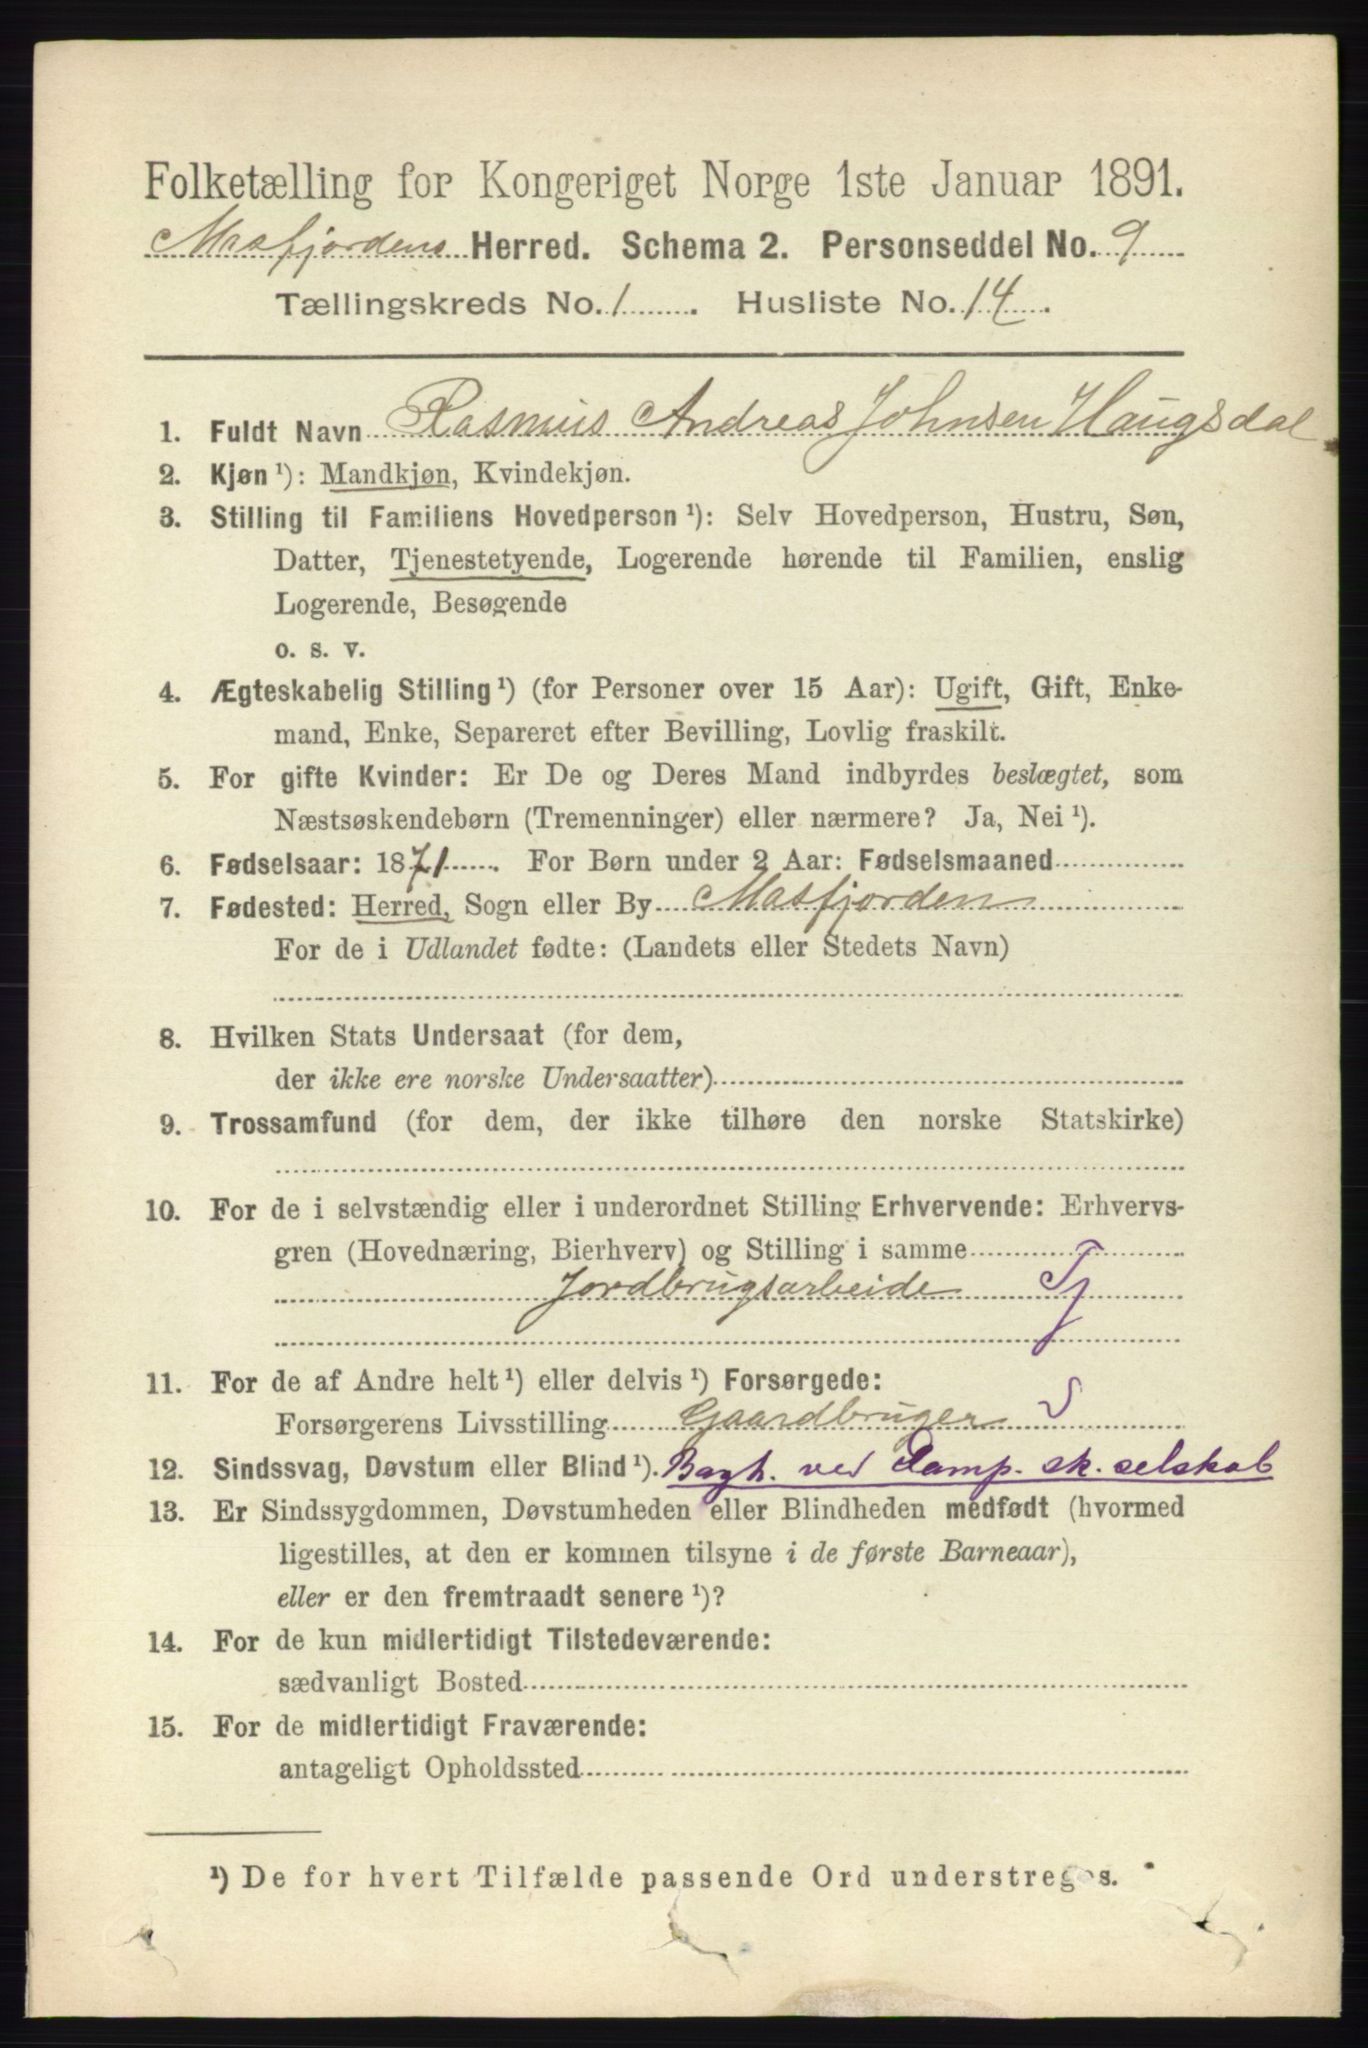 Folketælling for Kongeriget Norge 1ste Januar 1891.
Masfjordens Herred. Schema 2. Personseddel No. 9
Tællingskreds No. 1. Husliste No. 14.
1. Fuldt Navn Rasmus Andreas Johnsen Haugsdal
2. Kjøn ¹): Mandkjøn, Kvindekjøn.
3. Stilling til Familiens Hovedperson ¹): Selv Hovedperson, Hustru, Søn,
Datter, Tjenestetyende, Logerende hørende til Familien, enslig
Logerende, Besøgende
o. s. v.
4. Ægteskabelig Stilling ¹) (for Personer over 15 Aar): Ugift, Gift, Enke-
mand, Enke, Separeret efter Bevilling, Lovlig fraskilt.
5. For gifte Kvinder: Er De og Deres Mand indbyrdes beslægtet, som
Næstsøskendebørn (Tremenninger) eller nærmere? Ja, Nei ¹).
6. Fødselsaar: 1871. For Børn under 2 Aar: Fødselsmaaned
7. Fødested: Herred, Sogn eller By Masfjorden
For de i Udlandet fødte: (Landets eller Stedets Navn)
8. Hvilken Stats Undersaat (for dem,
der ikke ere norske Undersaatter)
9. Trossamfund (for dem, der ikke tilhøre den norske Statskirke)
10. For de i selvstændig eller i underordnet Stilling Erhvervende: Erhvervs-
gren (Hovednæring, Bierhverv) og Stilling i samme
Jordbrugsarbeide Tj
11. For de af Andre helt ¹) eller delvis ¹) Forsørgede:
Forsørgerens Livsstilling Gaardbruger S
12. Sindssvag, Døvstum eller Blind ¹). Bogh. ved Damp. sk. selskab
13. Er Sindssygdommen, Døvstumheden eller Blindheden medfødt (hvormed
ligestilles, at den er kommen tilsyne i de første Barneaar),
eller er den fremtraadt senere ¹)?
14. For de kun midlertidigt Tilstedeværende:
sædvanligt Bosted
15. For de midlertidigt Fraværende:
antageligt Opholdssted
¹) De for hvert Tilfælde passende Ord understreges.